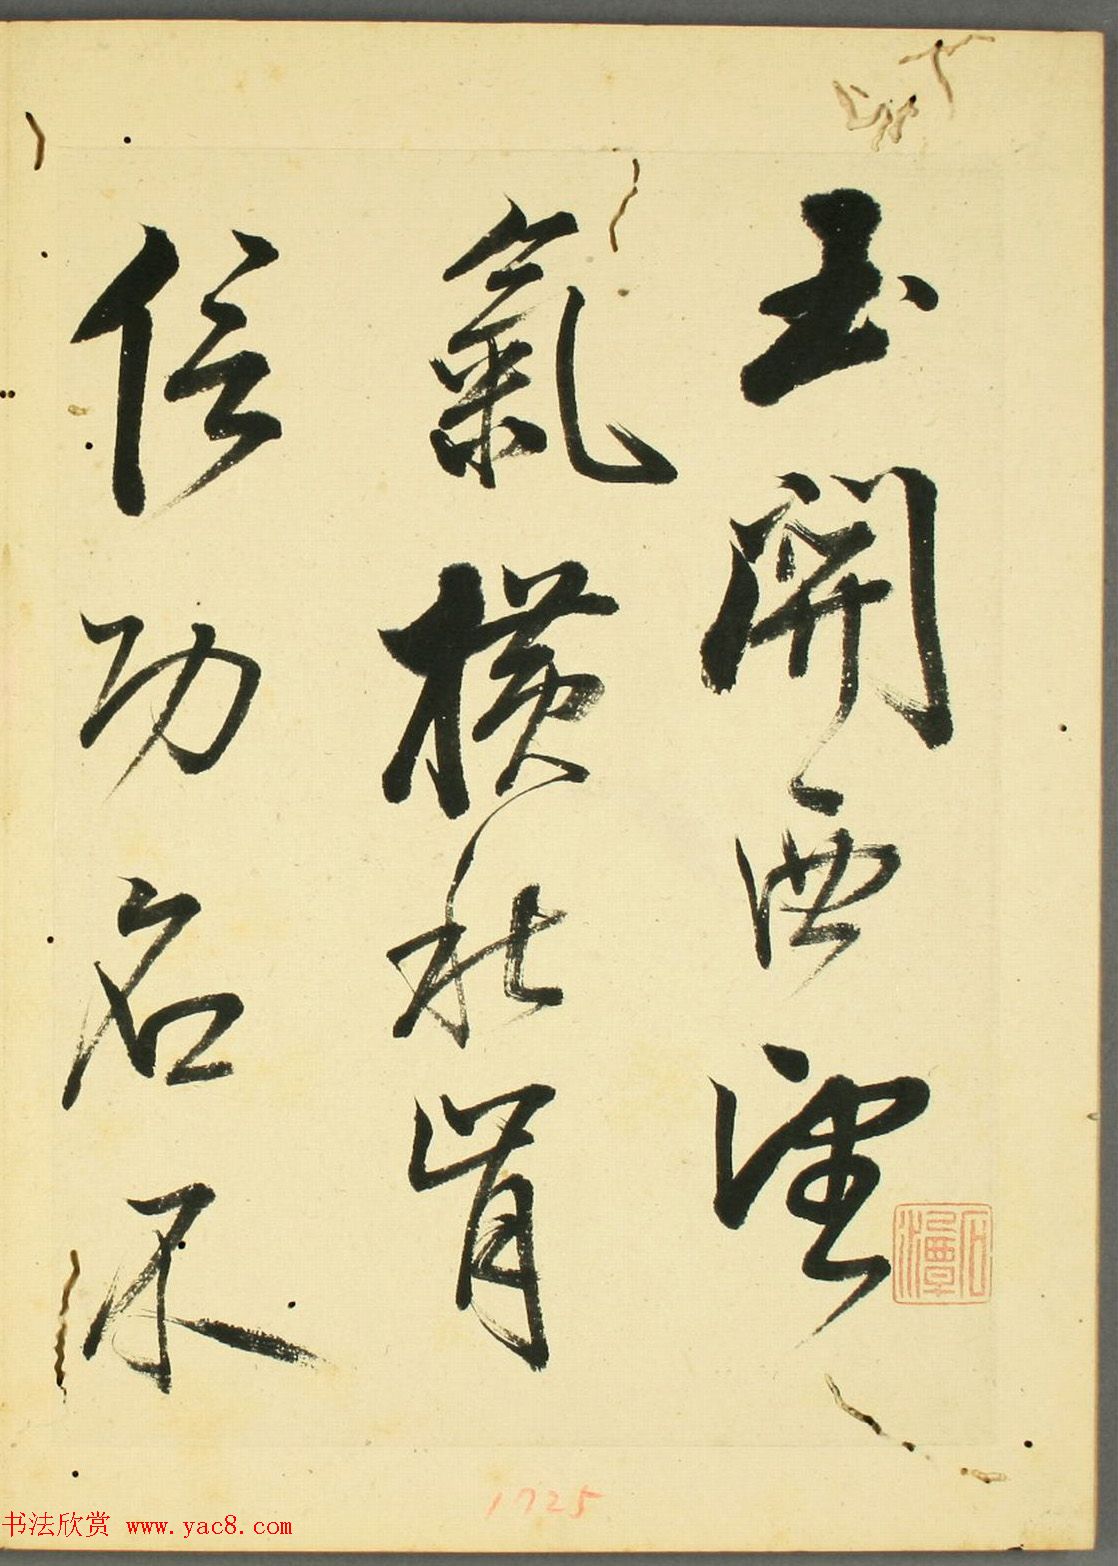 玉關西望
氣橫秋肯
信功名不
石潭
1725
书法欣赏 www.yac8.com